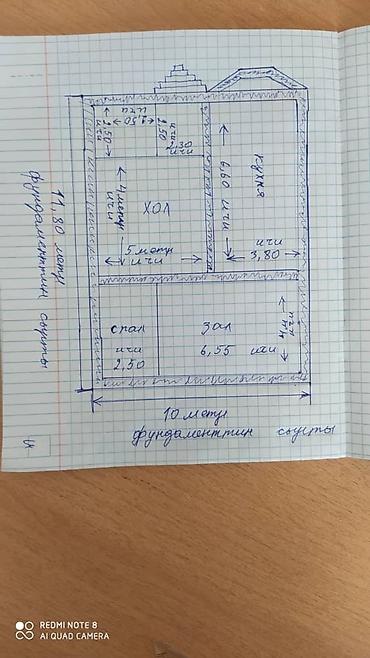 1,50
ичи
1,50
1,50
ичи
2,30
ичи
кухня
6,60 ичи
4 метр
ичи
ХОЛ
5 метр
ичи
ичи
3,80
спал
ичи
2,50
зал
6,55 ичи
4 м
ичи
11,80 метр
фундаменттин сырты
10 метр
фундаменттин сырты
REDMI NOTE 8
AI QUAD CAMERA